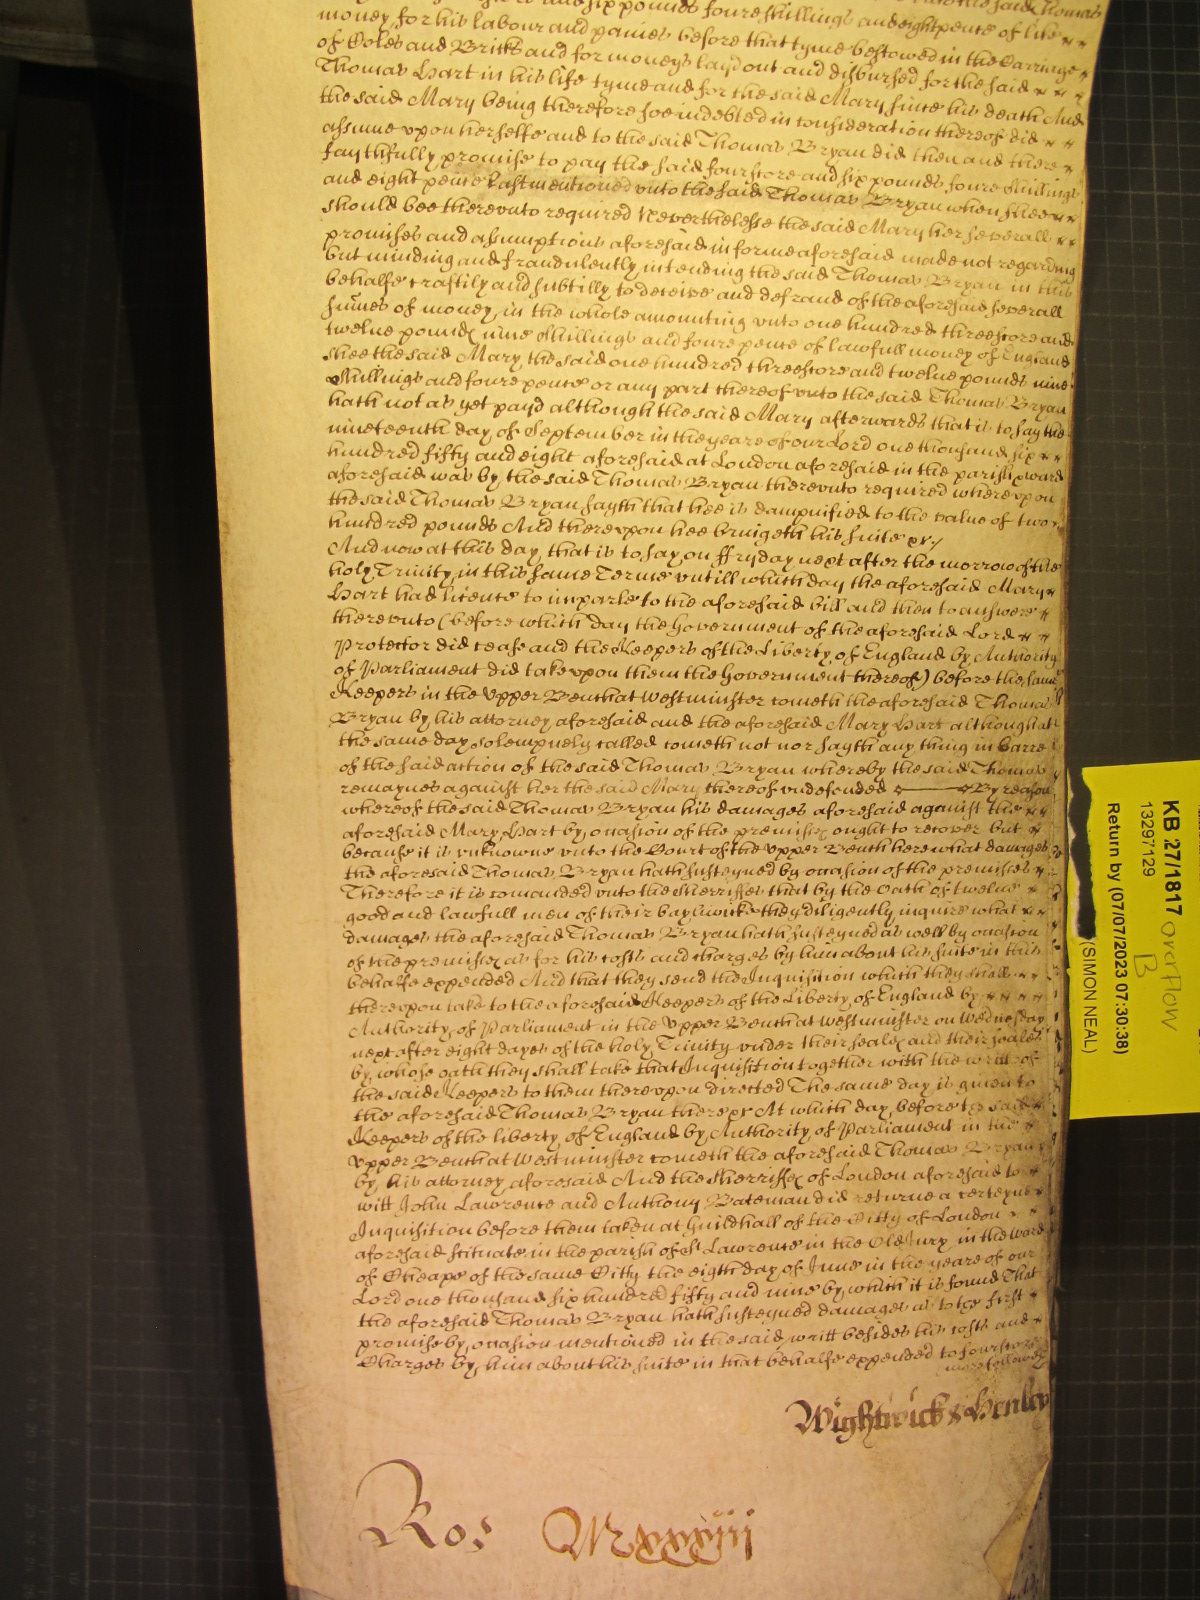 and six pounds foure shillings and eight pence of like
money for his labour and paines before that tyme bestowed in the Carriage
of Coles and Bricks and for moneys layd out and disbursed for the said
Thomas Hart in his life tyme and for the said Mary since his death And
the said Mary being therefore soe indebted in consideration thereof did
assume vpon herselfe and to the said Thomas Bryan did then and there
faythfully promise to pay the said fourscore and six pounds foure shillings
and eight pence last mentioned vnto the said Thomas Bryan when shee
should bee therevnto required Neverthelesse the said Mary her severall
promises and assumptions aforesaid in forme aforesaid made not regarding
but minding and fraudulently intending the said Thomas Bryan in this
behalfe craftily and subtilly to deceive and defraud of the aforesaid severall
summes of money, in the whole amounting vnto one hundred threescore and
twelve pounds nine shillings and foure pence of lawfull money of England
shee the said Mary, the said one hundred threescore and twelve pounds nine
shillings and foure pence or any part thereof vnto the said Thomas Bryan
hath not as yet payd although the said Mary afterwards that is to say the
nineteenth day of September in the yeare of our Lord one thousand six
hundred fifty and eight aforesaid at London aforesaid in the parish & ward
aforesaid was by the said Thomas Bryan therevnto required wherevpon
the said Thomas Bryan sayth that hee is dampnified to the value of two
hundred pounds And therevpon hee bringeth his suite &c./
And now at this day, that is to say, on ffryday next after the morrow of the
holy Trinity in this same Terme vntill which day the aforesaid Mary
Hart had licence to imparle to the aforesaid bill and then to answere
therevnto (before which day the Government of the aforesaid Lord
Protector did cease and the Keepers of the Liberty of England by Authority
of Parliament did take vpon them the Government thereof) before the same
Keepers in the Vpper Bench at Westminster cometh the aforesaid Thomas
Bryan by his attorney aforesaid and the aforesaid Mary Hart although at
the same day solempnely called cometh not nor sayth any thing in barre
of the said action of the said Thomas Bryan whereby the said Thomas
remaynes against her the said Mary thereof vndefended By reason
whereof the said Thomas Bryan his damages aforesaid against the
aforesaid Mary Hart by, occasion of the premisses ought to recover but
because it is vnknowne vnto the Court of the vpper Bench here what damages
the aforesaid Thomas Bryan hath susteyned by occasion of the premisses
Therefore it is comanded vnto the Sherriffes that by the Oath of twelve
good and lawfull men of their baylwicke they diligently inquire what
damages the aforesaid Thomas Bryan hath susteyned as well by occasion
of the premisses as for his costs and charges by him about his suite in this
behalfe expended And that they send the Inquisition which they shall
therevpon take to the aforesaid Keepers of the Liberty of England by
Authority of Parliament in the Vpper Bench at Westminster on Wednesday
next after eight dayes of the holy Trinity vnder their seales and their seales
by, whose oath they shall take that Inquisition together with the writt of
the said Keepers to them therevpon directed The same day is given to
the aforesaid Thomas Bryan there &c At which day, before the said
Keepers of the liberty of England by Authority of Parliament in the
vpper Bench at Westminster cometh the aforesaid Thomas Bryan
by, his attorney aforesaid And the Sherriffes of London aforesaid to
witt John Lawrence and Anthony Bateman did returne a certeyne
Inquisition before them taken at Guildhall of the Citty of London
aforesaid scituate in the parish of St Lawrence in the Old Jury in the ward
of Cheape of the same Citty the eigth day of June in the yeare of our
Lord one thousand six hundred fifty and nine by which it is found That
the aforesaid Thomas Bryan hath susteyned damages as to the first
promise by, occasion mentioned in the said writt besides his costs and
Charges by, him about his suite in that behalfe expended to fourscore
more followes
Wightwick & Henley
Ros Mxxxiij
KB 27/1817 overflow
B
13297129
Return by (07/07/2023 07:30:38)
(SIMON NEAL)